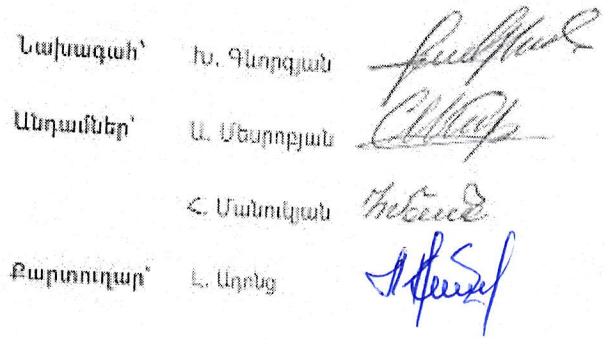 Նախագահ՝ Խ. Գևորգյան
Անդամներ՝ Ա. Մեսրոպյան
Հ. Մանուկյան
Քարտուղար՝ Լ. Ադոնց